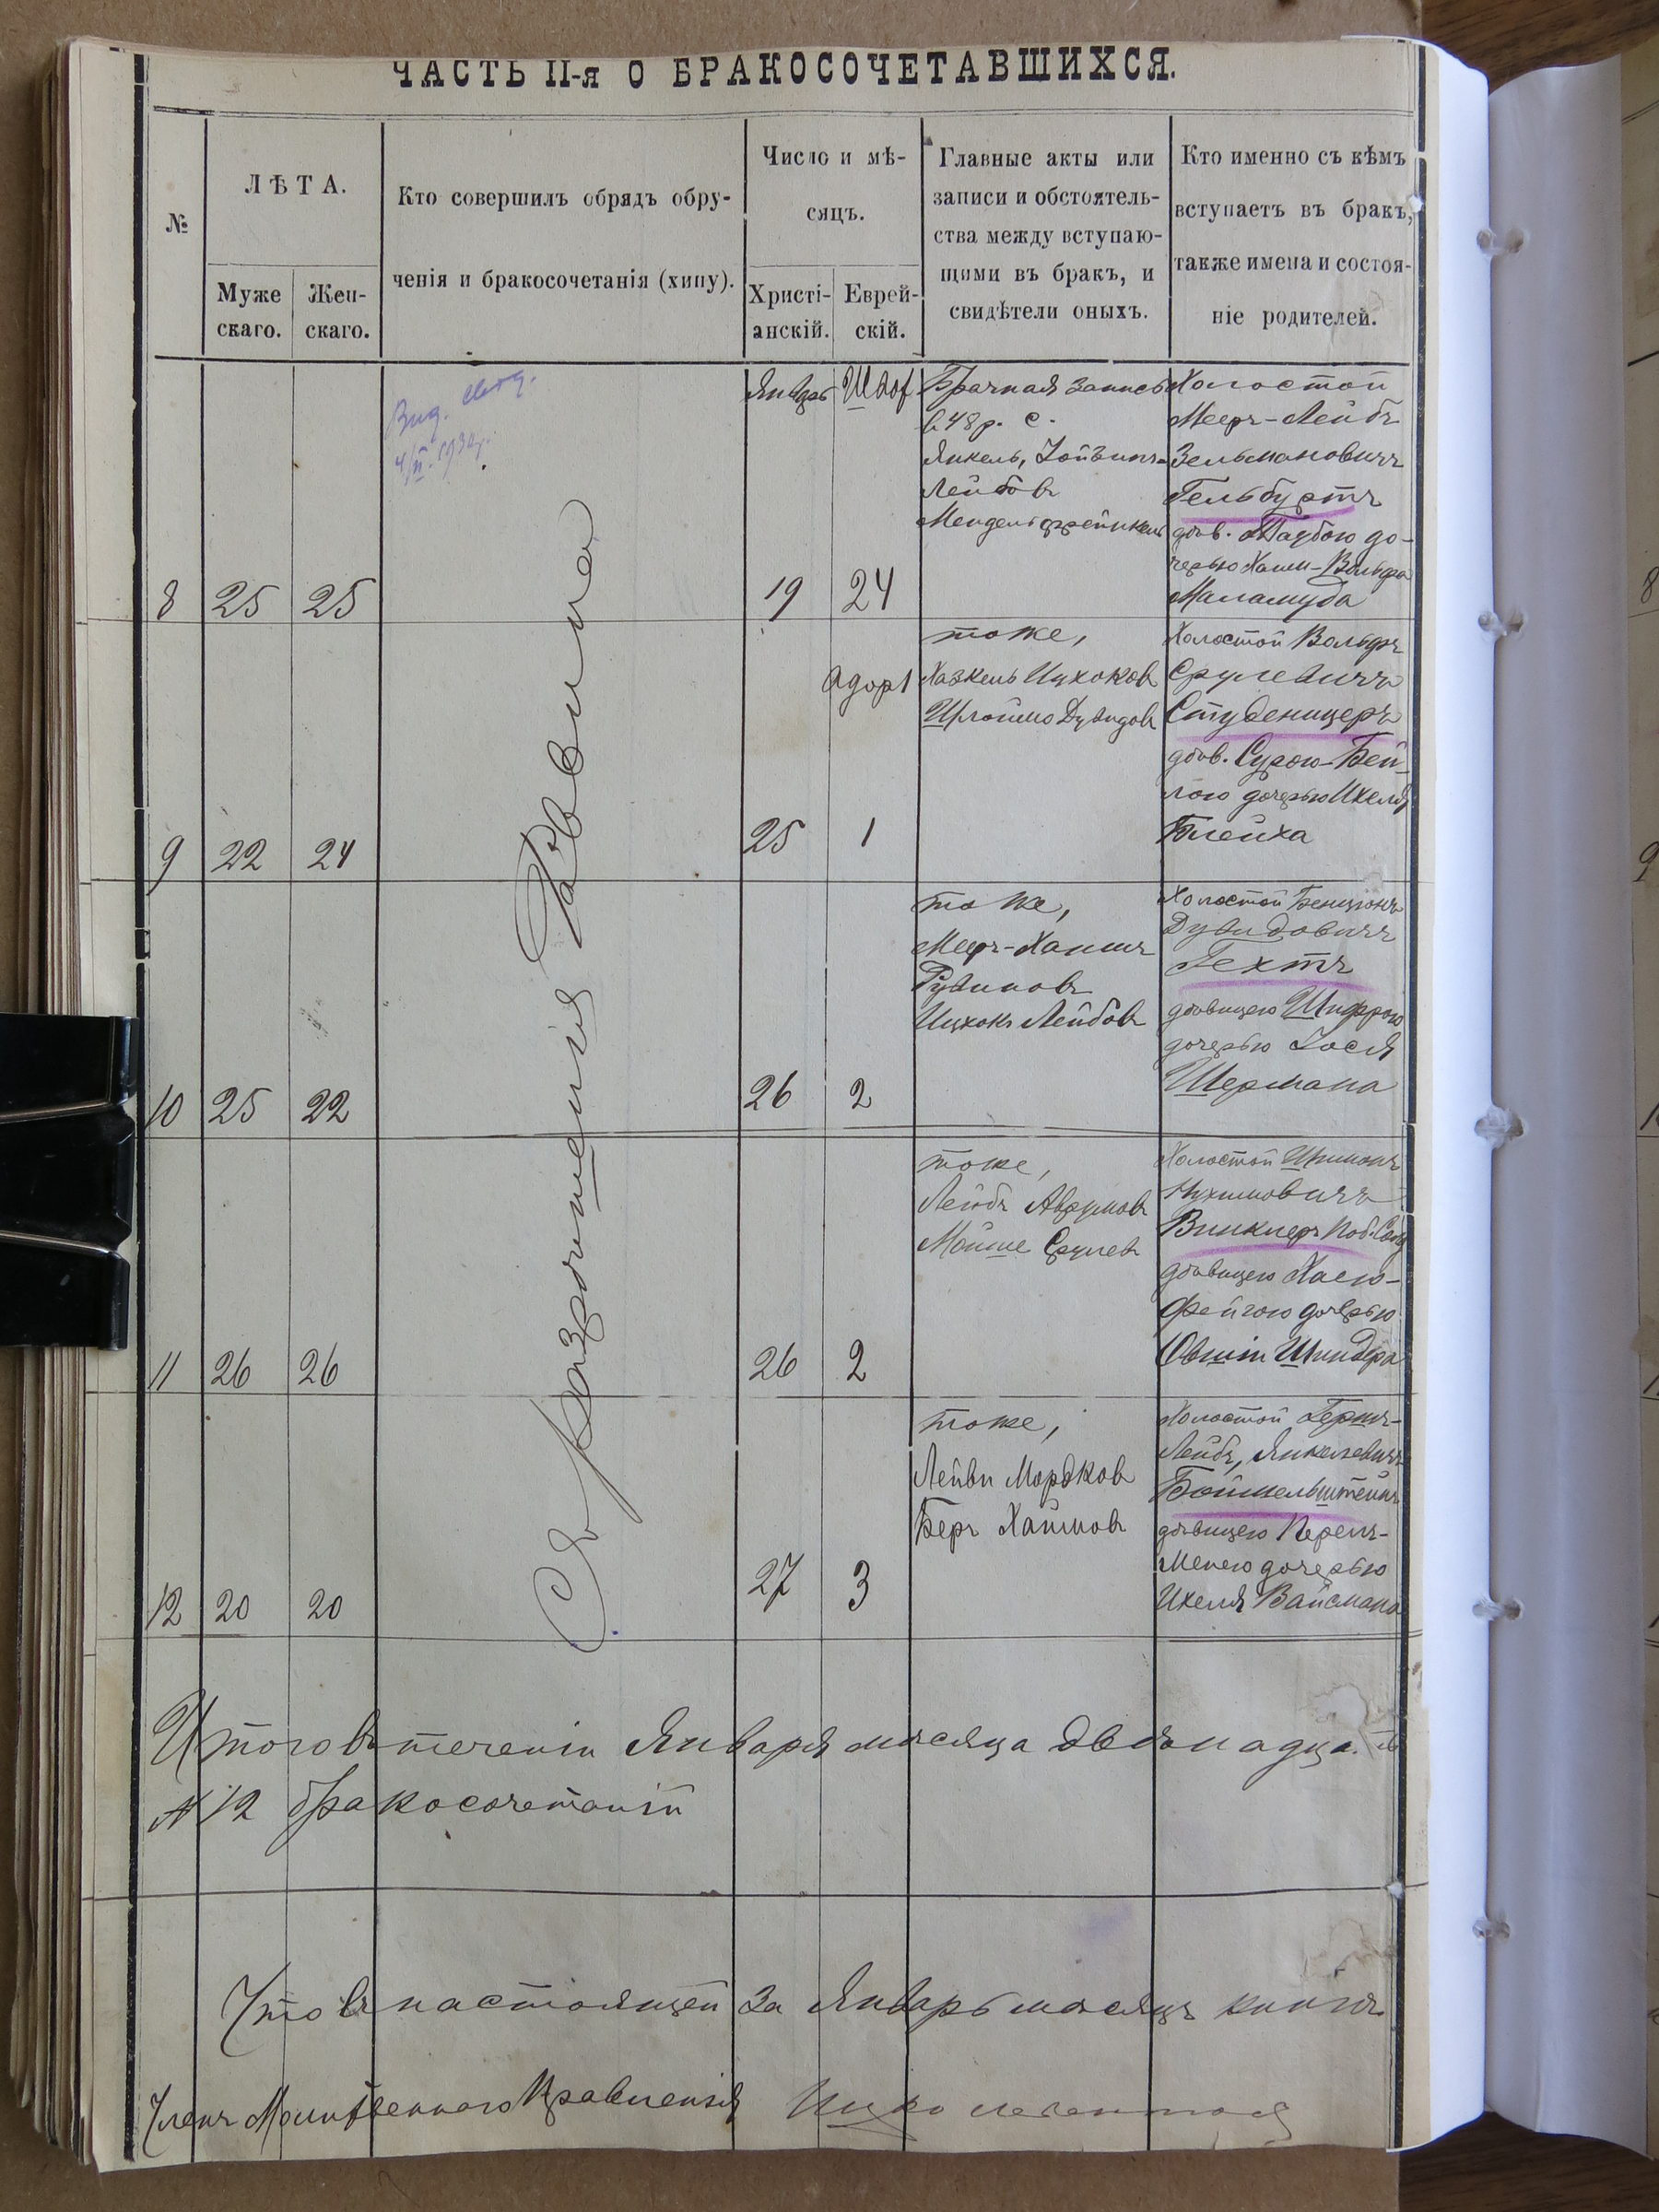 ЧАСТЬ II-я О БРАКОСОЧЕТАВШИХСЯ.
№
ЛѢТА.
Муже
скаго.
Жен-
скаго.
Кто совершилъ обрядъ обру-
ченія и бракосочетанія (хипу).
Число и мѣ-
сяцъ.
Христі-
анскій.
Еврей-
скій.
Главные акты или
записи и обстоятель-
ства между вступаю-
щими въ бракъ, и
свидѣтели оныхъ.
Кто именно съ кѣмъ
вступаетъ въ бракъ,
также имена и состоя-
ніе родителей.
Съ разрѣшенія Раввина
8
25
25
Январь
19
24
Брачная запись
въ 48 р. с.
Янкель,
Лейбовъ
Мендель
Холостой
Мееръ-Лейбъ
Зельмановичъ
Гельбуртъ
дѣв. Таубою до-
черью Хаим-Вольфа
Маламуда
9
22
24
25
Адоръ
1
тоже,
Хаскель Ицхоковъ
Шлоймо Дувидовъ
Холостой Вольфъ
Срулевичъ
Студеницеръ
дѣв. Сурою-Бей-
лою дочерью Ихеля
Блейха
10
25
22
26
2
тоже,
Мееръ-Хаимъ
Рувиновъ
Ицхокъ Лейбовъ
Холостой Бенціонъ
Дувидовичъ
Гехтъ
дѣвицею Шифрою
дочерью Іося
Шермана
11
26
26
26
2
тоже,
Лейбъ Аврумовъ
Мойше Срулевъ
Холостой Шимонъ
Нухимовичъ
Винклеръ
дѣвицею Хаею-
Фейгою дочерью
Овшіи Шнидера
12
20
20
27
3
тоже,
Лейви Мордковъ
Беръ Хаимовъ
Холостой Гершъ-
Лейбъ, Янкелевичъ
Бойшельштейнъ
дѣвицею Перель-
Менею дочерью
Ихеля Вайсмана
Итого въ теченіи Января мѣсяца двѣнадца.ть
№ 12 бракосочетаній
Что въ настоящей за Январь мѣсяцъ книгѣ
Членъ Молитвеннаго Правленія